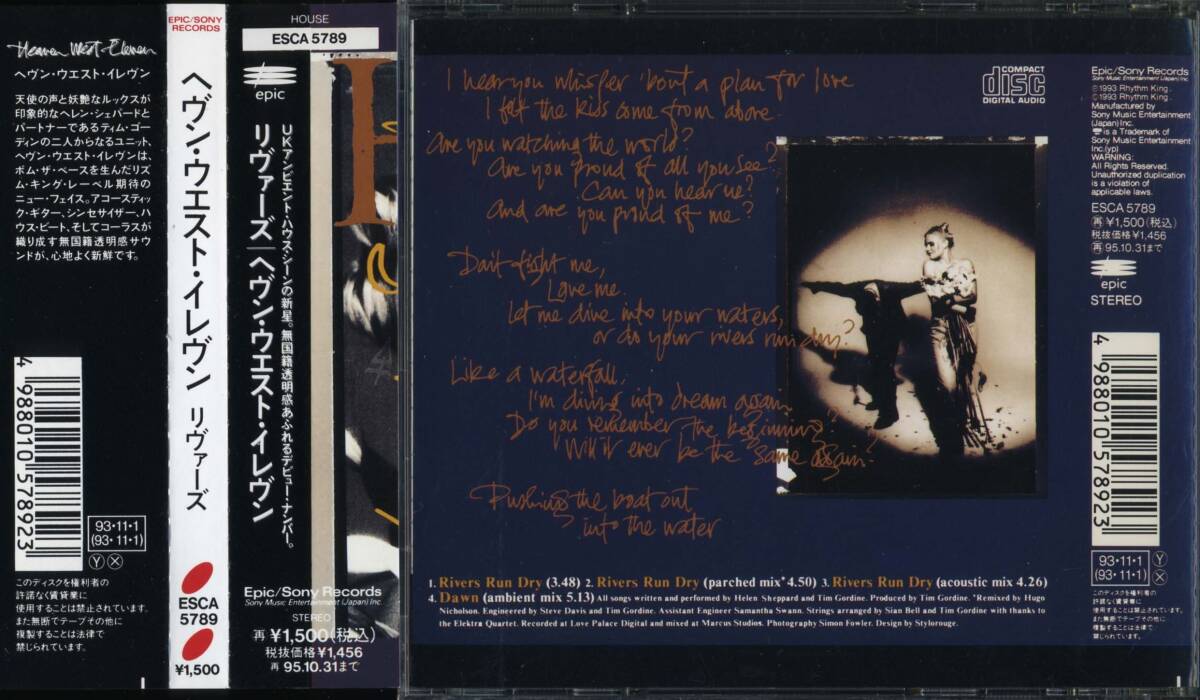 Heaven West Eleven
ヘヴン・ウエスト・イレヴン
天使の声と妖艶なルックスが
印象的なヘレン・シェパードと
パートナーであるティム・ゴー
ディンの二人からなるユニット、
ヘヴン・ウエスト・イレヴンは、
ボム・ザ・ベースを生んだリズ
ム・キング・レーベル期待の
ニュー・フェイス。アコースティッ
ク・ギター、シンセサイザー、ハ
ウス・ビート、そしてコーラスが
織り成す無国籍透明感サウ
ンドが、心地よく新鮮です。
4 988010 578923
93・11・1
(93・11・1)
Ⓨ Ⓧ
このディスクを権利者の
許諾なく賃貸業に
使用することは禁止されています。
また無断でテープその他に
複製することは法律で
禁じられています。
EPIC/SONY
RECORDS
ヘヴン・ウエスト・イレヴン リヴァーズ
ESCA
5789
¥1,500
HOUSE
ESCA 5789
epic
UKアンビエント・ハウス・シーンの新星。無国籍透明感あふれるデビュー・ナンバー。
リヴァーズ/ヘヴン・ウエスト・イレヴン
Epic/Sony Records
Sony Music Entertainment (Japan) Inc.
STEREO
再 ¥1,500(税込)
税抜価格¥1,456
再 95.10.31まで
I hear you whisper 'bout a plan for love
I felt the kids come from above.
Are you watching the world?
Are you proud of all you see?
Can you hear me?
And are you proud of me?
Don't fight me,
Love me.
Let me dive into your waters,
or do your rivers run dry?
Like a waterfall,
I'm diving into dream again.
Do you remember the beginning?
Will it ever be the same again?
Pushing the boat out
into the water
COMPACT
disc
DIGITAL AUDIO
Epic/Sony Records
Sony Music Entertainment (Japan) Inc.
℗1993 Rhythm King.
©1993 Rhythm King.
Manufactured by
Sony Music Entertainment
(Japan) Inc.
is a Trademark of
Sony Music Entertainment
Inc.(yp)
WARNING:
All Rights Reserved.
Unauthorized duplication
is a violation of
applicable laws.
ESCA 5789
再 ¥1,500(税込)
税抜価格¥1,456
再 95.10.31まで
epic
STEREO
4 988010 578923
93・11・1
(93・11・1)
Ⓨ Ⓧ
このディスクを権利者の
許諾なく賃貸業に
使用することは禁止されています。
また無断でテープその他に
複製することは法律で
禁じられています。
1. Rivers Run Dry (3.48) 2. Rivers Run Dry (parched mix* 4.50) 3. Rivers Run Dry (acoustic mix 4.26)
4. Dawn (ambient mix 5.13) All songs written and performed by Helen Sheppard and Tim Gordine. Produced by Tim Gordine. *Remixed by Hugo
Nicholson. Engineered by Steve Davis and Tim Gordine. Assistant Engineer Samantha Swann. Strings arranged by Sian Bell and Tim Gordine with thanks to
the Elektra Quartet. Recorded at Love Palace Digital and mixed at Marcus Studios. Photography Simon Fowler. Design by Stylorouge.